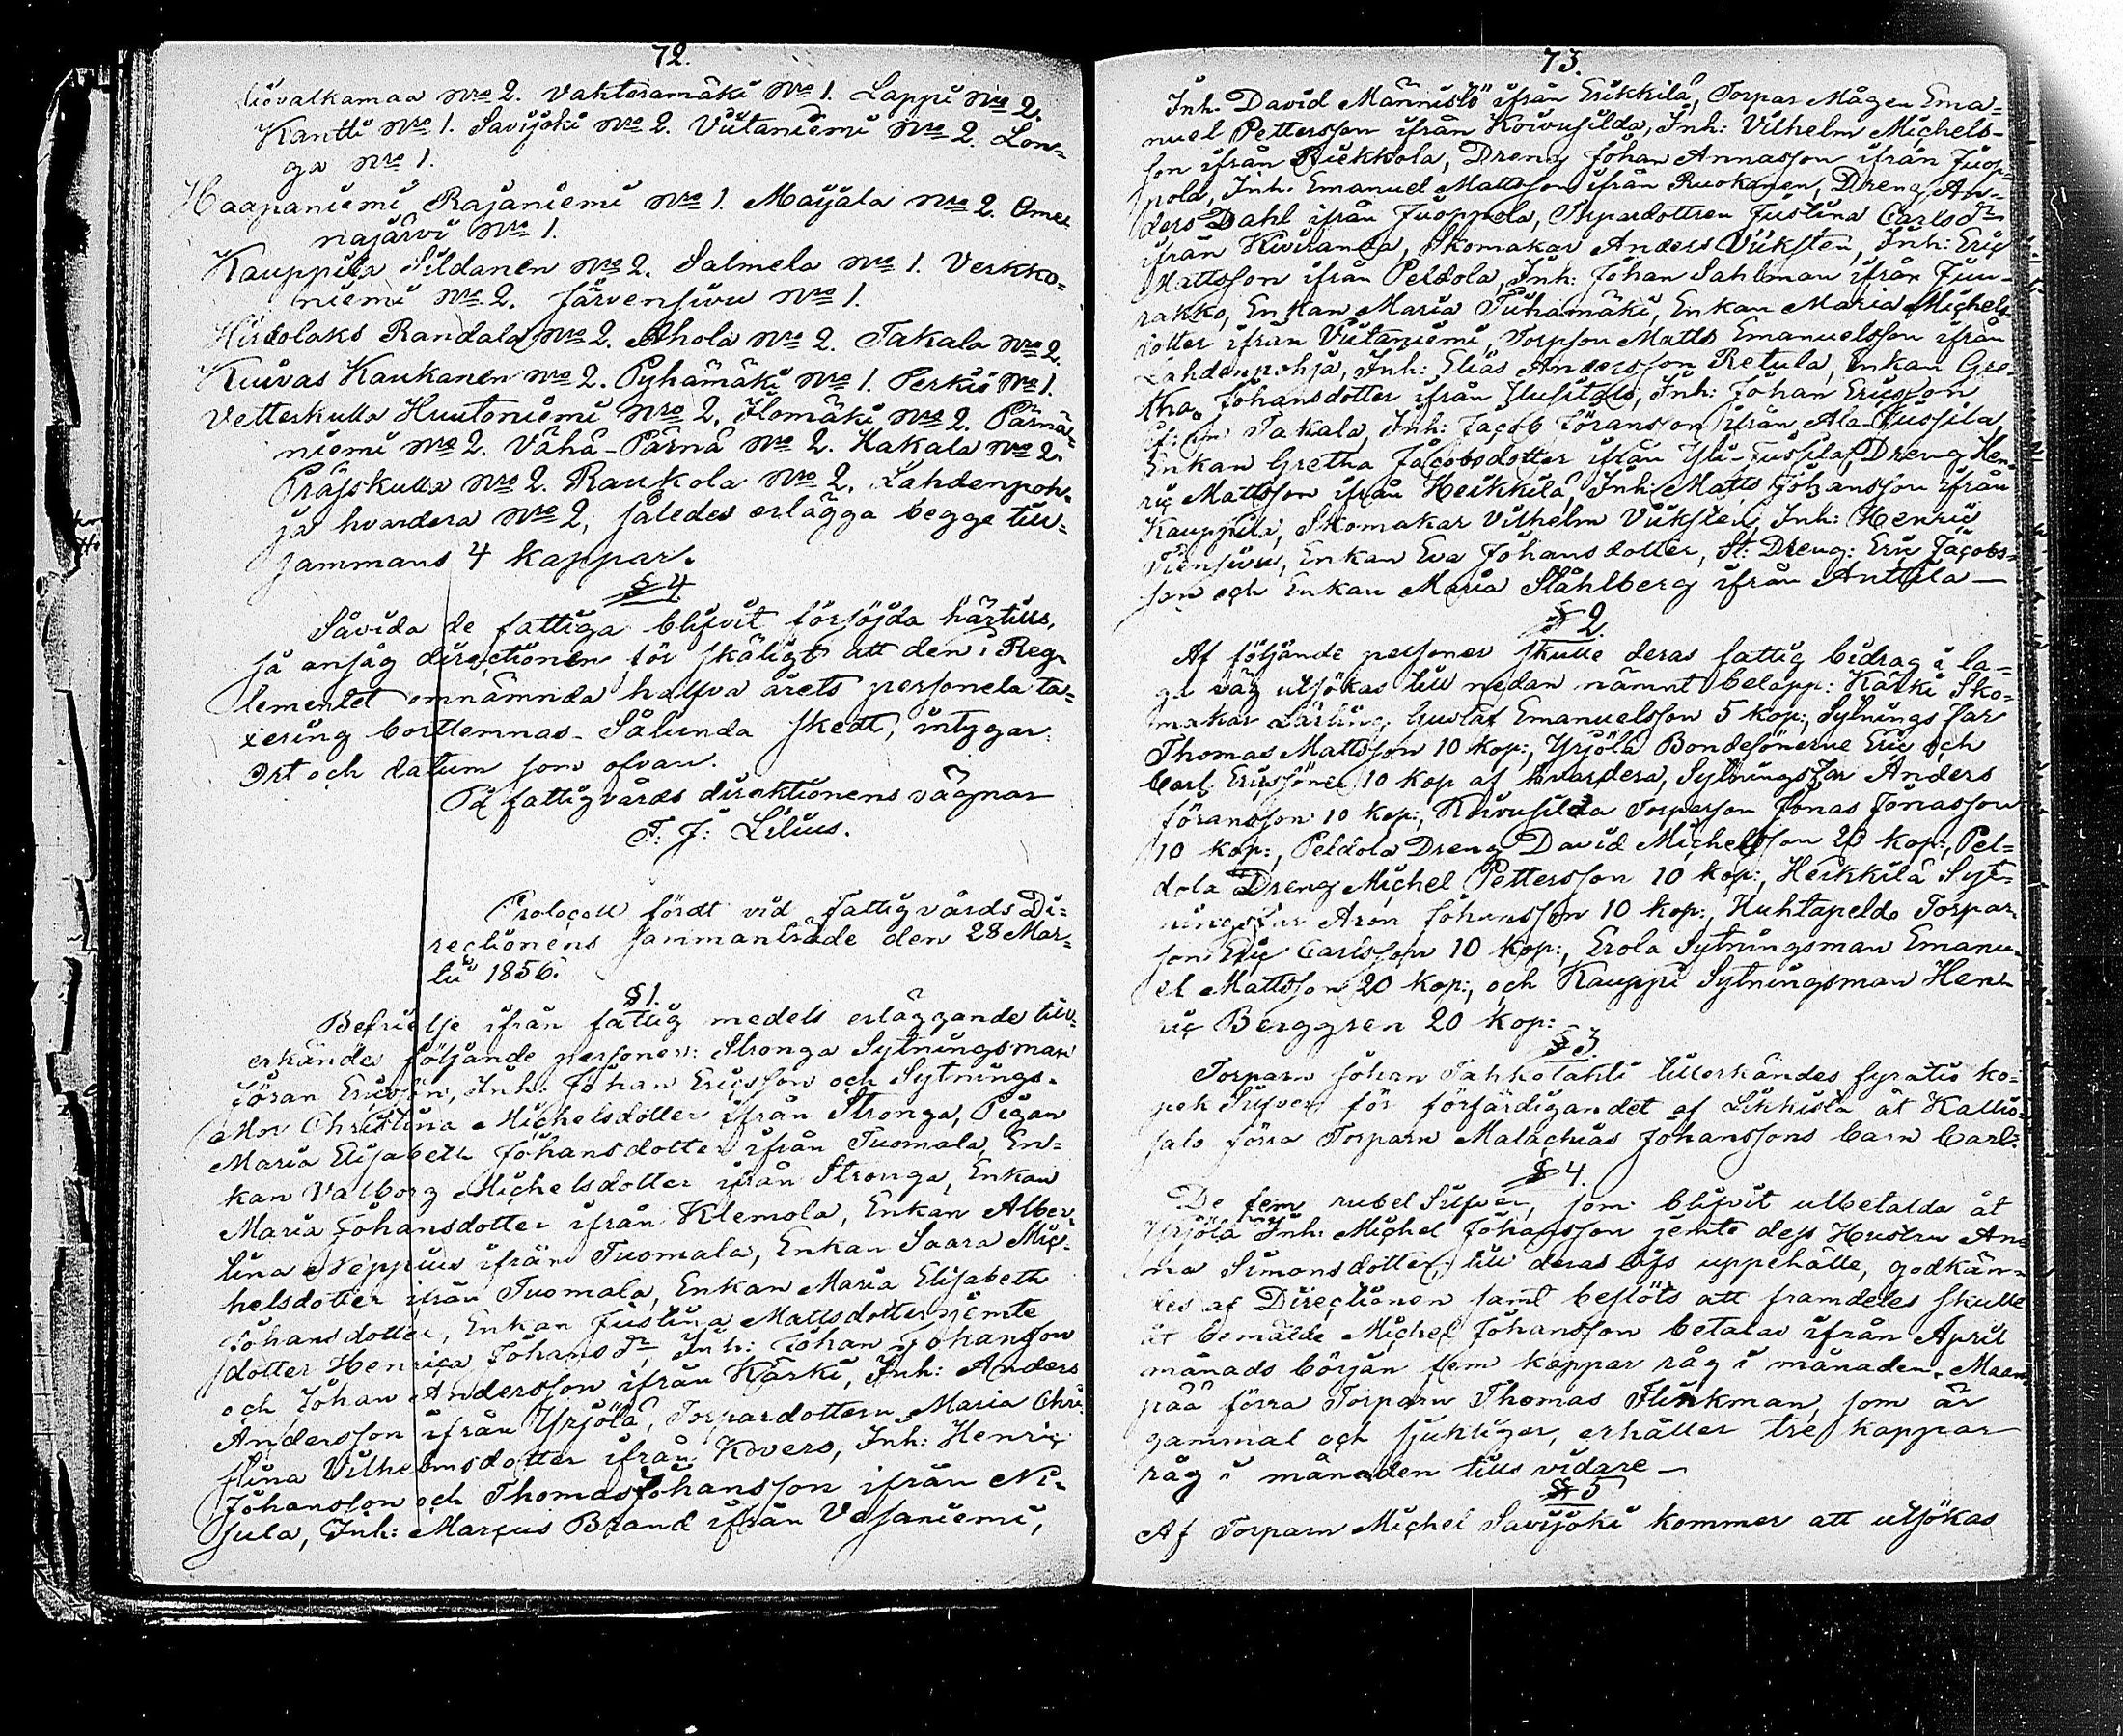 72.
valkamaa Nro 2. Vakteramäki Nro 1. Lappi Nro 2.
Kantti Nro 1. Savijoki Nro 2. Viitaniemi Nro 2. Lon-
ga Nro 1.
Haapaniemi Rajaniemi Nro 1. Maijala Nro 2. Ome
najärvi Nro 1.
Kauppila Sildanen Nro 2. Salmela Nro 1. Verkko-
niemi Nro 2. Järvensivu Nro 1.
Hirdolaks Randala Nro 2. Ahola Nro 2. Takala Nro 2.
Kuivas Kaukanen Nro 2. Pyhämäki Nro 1. Perkiö Nro 1.
Vetterkulla Huutoniemi Nro 2. Ilomäki Nro 2. Pärnä-
niemi Nro 2. Vähä-Pärnä Nro 2. Kakala Nro 2.
Präfskulla Nro 2. Raukola Nro 2. Lahdenpoh-
ja hvardera Nro 2, således erlägga begge till-
sammans 4 kappar.
§ 4
Såvida de fattiga blifvit försöjda härtills,
så ansåg directionen för skäligt att den i Reg-
lementet omnämnda halfva årets personela ta-
xering borttemnas. Sålunda skedt, intygar.
Ort och datum som ofvan.
På fattigvårds direktionens vägnar
F. J: Lilius.
Protocoll fördt vid Fattigvårds Di-
rectionens sammanträde den 28 Mar-
tii 1856.
§ 1.
Befrielse ifrån fattig medels erläggande till-
erkändes följande personer: Stronga Sytningsman
Jöran Ericsson, Inh: Johan Ericsson och Sytnings-
Christina Michelsdotter ifrån Stronga, Pigan
Maria Elisabeth Johansdotter ifrån Tuomala, En-
kan Valborg Michelsdotter ifrån Stronga, Enkan
Maria Johansdotter ifrån Klemola, Enkan Alber-
tina Neppius ifrån Tuomala, Enkan Saara Mic-
helsdotter ifrån Tuomala, Enkan Maria Elisabeth
Johansdotter, Enkan Justina Mattsdotter jemte
dotter Henrica Johansdr, Inh: Johan Johansson
och Johan Andersson ifrån Kärki, Inh: Anders
Andersson ifrån Yrjölä, Torpardottern Maria Chri
stina Vilhelmsdotter ifrån Kovero, Inh: Henric
Johansson och Thomas Johansson ifrån Ni-
sula, Inh: Marcus Brand ifrån Vesaniemi,
73.
Inh: David Männistö ifrån Erikkilä, Torpar Mågen Ema-
nuel Pettersson ifrån Koivusilda, Inh: Vilhelm Michels-
son ifrån Riekkola, Dreng Johan Annasson ifrån Juop-
pola, Inh. Emanuel Mattsson ifrån Ruokanen, Dreng An-
ders Dahl ifrån Juoppola, Torpardottren Justina Carlsdr
ifrån Kiviranda, Skomakar Anders Viiksten, Inh: Eric
Mattsson ifrån Peldola, Inh: Johan Sahlman ifrån Juu-
rakko, Enkan Maria Tuhamäki, Enkan Maria Michels-
dotter ifrån Viitaniemi, Torpson Matts Emanuelsson ifrån
Lahdenpohja, Inh: Elias Andersson Retula, Enkan Gre-
tha Johansdotter ifrån Ilusitalo, Inh: Johan Ericsson
Takala, Inh: Jacob Göransson ifrån Ala-Jussila,
Enkan Gretha Jacobsdotter ifrån Yli-Jussila, Dreng Hen-
ric Mattsson ifrån Heikkilä, Inh: Matts Johansson ifrån
Kauppila, Skomakar Vilhelm Viiksten, Inh: Henric
Tiensivu, Enkan Eva Johansdotter, St: Dreng: Eric Jacobs-
son och Enkan Maria Ståhlberg ifrån Anttila
§ 2.
Af följande personer skulle deras fattig bidrag i la-
ga väg utsökas till nedan nämnt belopp: Kärki Sko-
makar Lärling Gustaf Emanuelsson 5 kop:, Sytnings far
Thomas Mattsson 10 kop:, Yrjölä Bondesönerne Eric och
Carl Ericssöner 10 kop af hvardera, Sytningsfar Anders
Göransson 10 kop:, Koivusilda Torparson Jonas Jonasson
10 kop:, Peldola Dreng David Michelsson 20 kop:, Pel-
dola Dreng Michel Pettersson 10 kop:, Heikkilä Syt-
ningsfar Aron Johansson 10 kop:, Huhtapeldo Torpar-
son Eric Carlsson 10 kop:, Erola Sytningsman Emanu-
el Mattsson 20 kop:, och Kauppi Sytningsman Hen-
ric Berggren 20 kop:
§ 3.
Torparn Johan Tahkolahti tillerkändes fyratio ko-
pek Silfver för förfärdigandet af Likkista åt Kallio-
salo förra Torparn Malachias Johanssons barn Carl.
§ 4.
De fem rubel Silfver, som blifvit utbetalda åt
Yrjölä Inh: Michel Johansson jemte dess Hustru An-
na Simonsdotter, till deras lifs uppehälle, godkän-
des af Directionen samt beslöts att framdeles skulle
åt bemälde Michel Johansson betalas ifrån April
månads början fem kappar råg i månaden. Maan-
pää förra Torparn Thomas Flinkman, som är
gammal och sjukliger, erhåller tre kappar
råg i månaden tills vidare
§ 5
Af Torparn Michel Savijoki kommer att utsökas